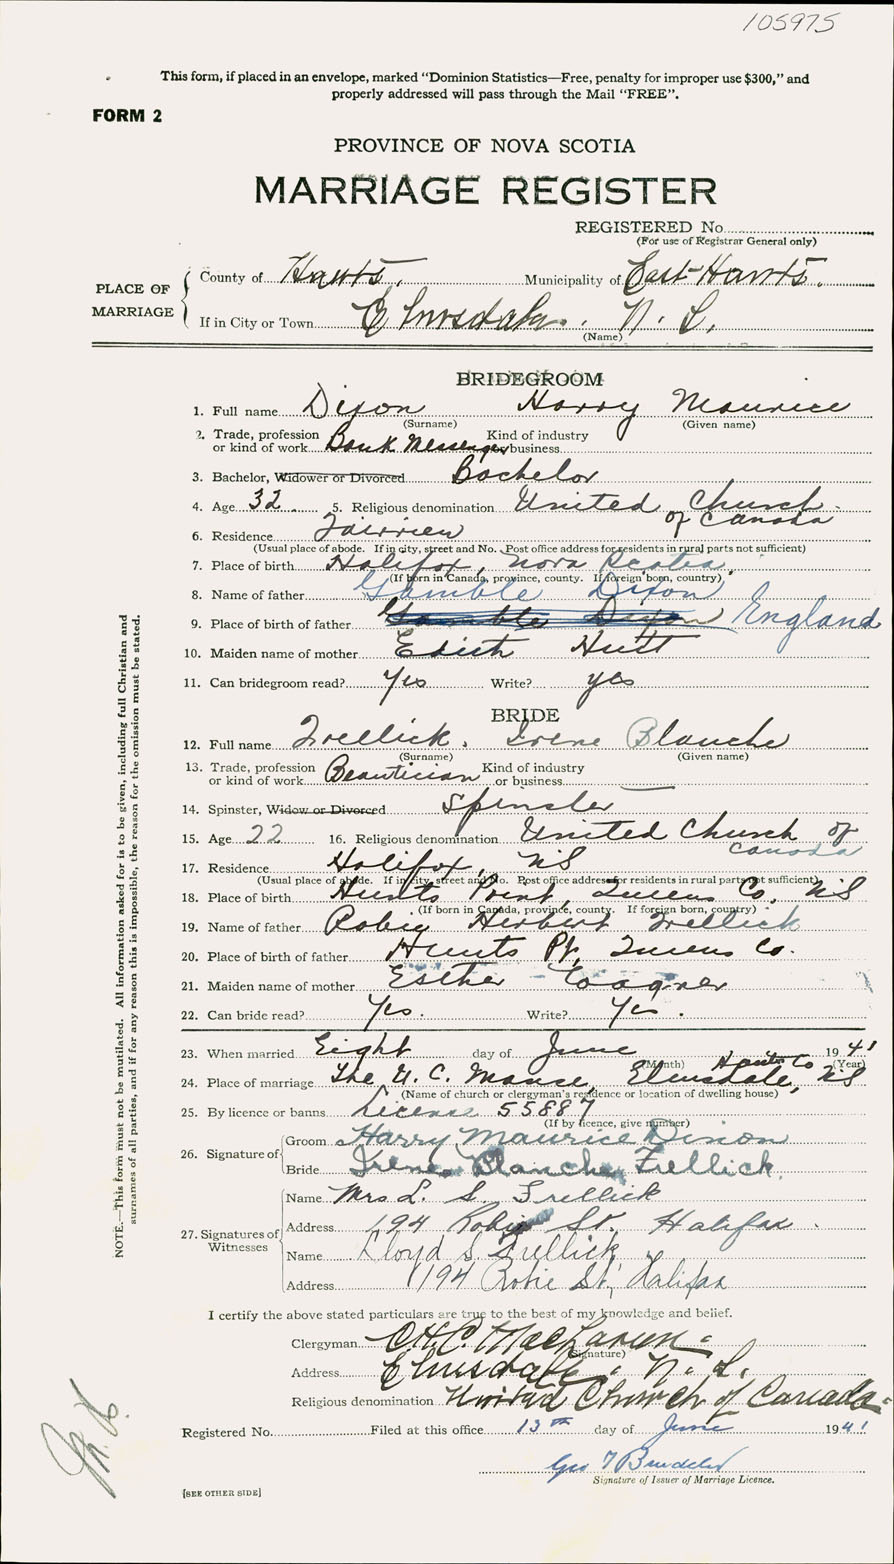 105975
This form, if placed in an envelope, marked “Dominion Statistics—Free, penalty for improper use $300,” and
properly addressed will pass through the Mail “FREE”.
FORM 2
PROVINCE OF NOVA SCOTIA
MARRIAGE REGISTER
REGISTERED No.
(For use of Registrar General only)
PLACE OF MARRIAGE
County of Hants. Municipality of East-Hants.
If in City or Town Elmsdale. N. S.
(Name)
BRIDEGROOM
1. Full name Dixon Harry Maurice
(Surname) (Given name)
2. Trade, profession Kind of industry
or kind of work Bank Messenger or business
3. Bachelor, Widower or Divorced Bachelor
4. Age 32 5. Religious denomination United Church
of Canada
6. Residence Fairview
(Usual place of abode. If in city, street and No. Post office address for residents in rural parts not sufficient)
7. Place of birth Halifax, Nova Scotia.
(If born in Canada, province, county. If foreign born, country)
8. Name of father Gamble Dixon
9. Place of birth of father Gamble Dixon England
10. Maiden name of mother Edith Hutt
11. Can bridegroom read? Yes Write? yes
BRIDE
12. Full name Frellick. Irene Blanche
(Surname) (Given name)
13. Trade, profession Kind of industry
or kind of work Beautician or business
14. Spinster, Widow or Divorced Spinster
15. Age 22 16. Religious denomination United Church of
Canada
17. Residence Halifax, NS
(Usual place of abode. If in city, street and No. Post office address for residents in rural parts not sufficient)
18. Place of birth Hunts Point, Queens Co, NS
(If born in Canada, province, county. If foreign born, country)
19. Name of father Robie Herbert Frellick
20. Place of birth of father Hunts Pt, Queens Co.
21. Maiden name of mother Esther Wagner
22. Can bride read? Yes. Write? Yes.
23. When married Eight day of June 1941
(Month) (Year)
Hants Co
24. Place of marriage The U. C. Manse, Elmsdale, NS
(Name of church or clergyman's residence or location of dwelling house)
25. By licence or banns License 55887
(If by licence, give number)
26. Signature of
Groom Harry Maurice Dixon
Bride Irene Blanche Frellick.
27. Signatures of Witnesses
Name Mrs L. S. Frellick
Address 194 Robie St. Halifax.
Name Lloyd S. Frellick
Address 194 Robie St, Halifax
I certify the above stated particulars are true to the best of my knowledge and belief.
Clergyman MacLaren
(Signature)
Address Elmsdale. N. S.
Religious denomination United Church of Canada
Registered No. Filed at this office 13th day of June 1941
Geo T
Signature of Issuer of Marriage Licence.
[SEE OTHER SIDE]
NOTE.—This form must not be mutilated. All information asked for is to be given, including full Christian and
surnames of all parties, and if for any reason this is impossible, the reason for the omission must be stated.